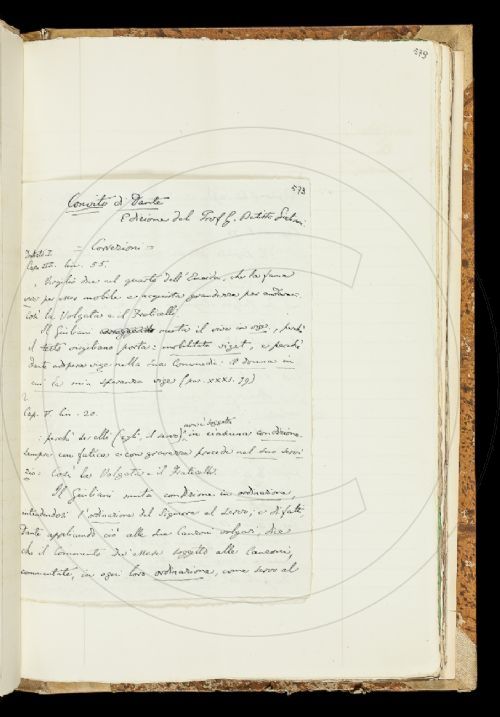 579
573
Convito di Dante
Edizione del Prof G. Batista
= Correzioni =
Trattato I.
Cap. III. lin. 55.
Virgilio dice nel quarto dell'Eneida, che la fama
vive per esser mobile e acquista grandezza per andare.
Così la Volgata e il Fraticelli.
Il Giuliani muta il vive in vige, perchè
il testo virgiliano porta: mobilitate viget, e perchè
Dante adopera vige nella sua Commedia: O donna in
cui la mia speranza vige (par. XXXI. 79)
Cap. V. lin. 20.
: perchè se esso (egli, il servo) non è soggetto in ciascuna condizione
sempre con fatica e con gravezza procede nel suo servi
zio: Così la Volgata e il Fraticelli.
Il Giuliani muta condizione in ordinazione,
intendendosi l'ordinazione del Signore al servo; e di fatti
Dante applicando ciò alle sue Canzoni volgari, dice
che il commento dev'essere soggetto alle Canzoni,
commentate, in ogni loro ordinazione, come servo al